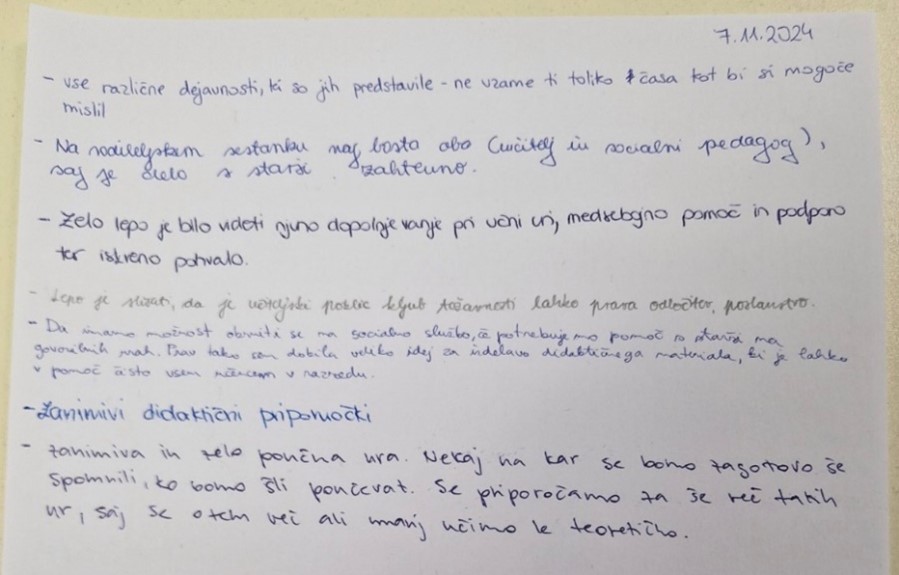 7.11.2024
- vse različne dejavnosti, ki so jih predstavile - ne vzame ti toliko časa kot bi si mogoče
mislil
- Na roditeljskem sestanku naj bosta oba (učitelj in socialni pedagog),
saj je delo s starši zahtevno.
- Zelo lepo je bilo videti njuno dopolnjevanje pri učni uri, medsebojno pomoč in podporo
ter iskreno pohvalo.
- Lepo je slišati, da je učiteljski poklic kljub težavnosti lahko prava odločitev, poslanstvo.
- Da imamo možnost obrniti se na socialno službo, če potrebujemo pomoč s starši na
govorilnih urah. Prav tako sem dobila veliko idej za izdelavo didaktičnega materiala, ki je lahko
v pomoč čisto vsem učencem v razredu.
- Zanimivi didaktični pripomočki
- zanimiva in zelo poučna ura. Nekaj na kar se bomo zagotovo še
spomnili, ko bomo šli poučevat. Se priporočamo za še več takih
ur, saj se o tem več ali manj učimo le teoretično.